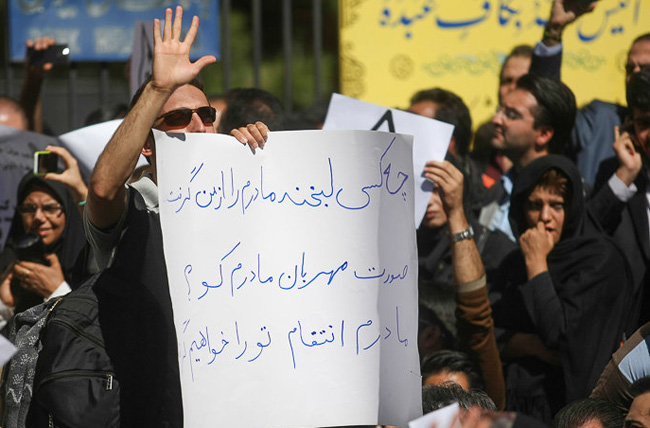 چه کسی لبخند مادرم را از من گرفت
صورت مهربان مادرم کو؟
مادرم انتقام تو را خواهیم گ